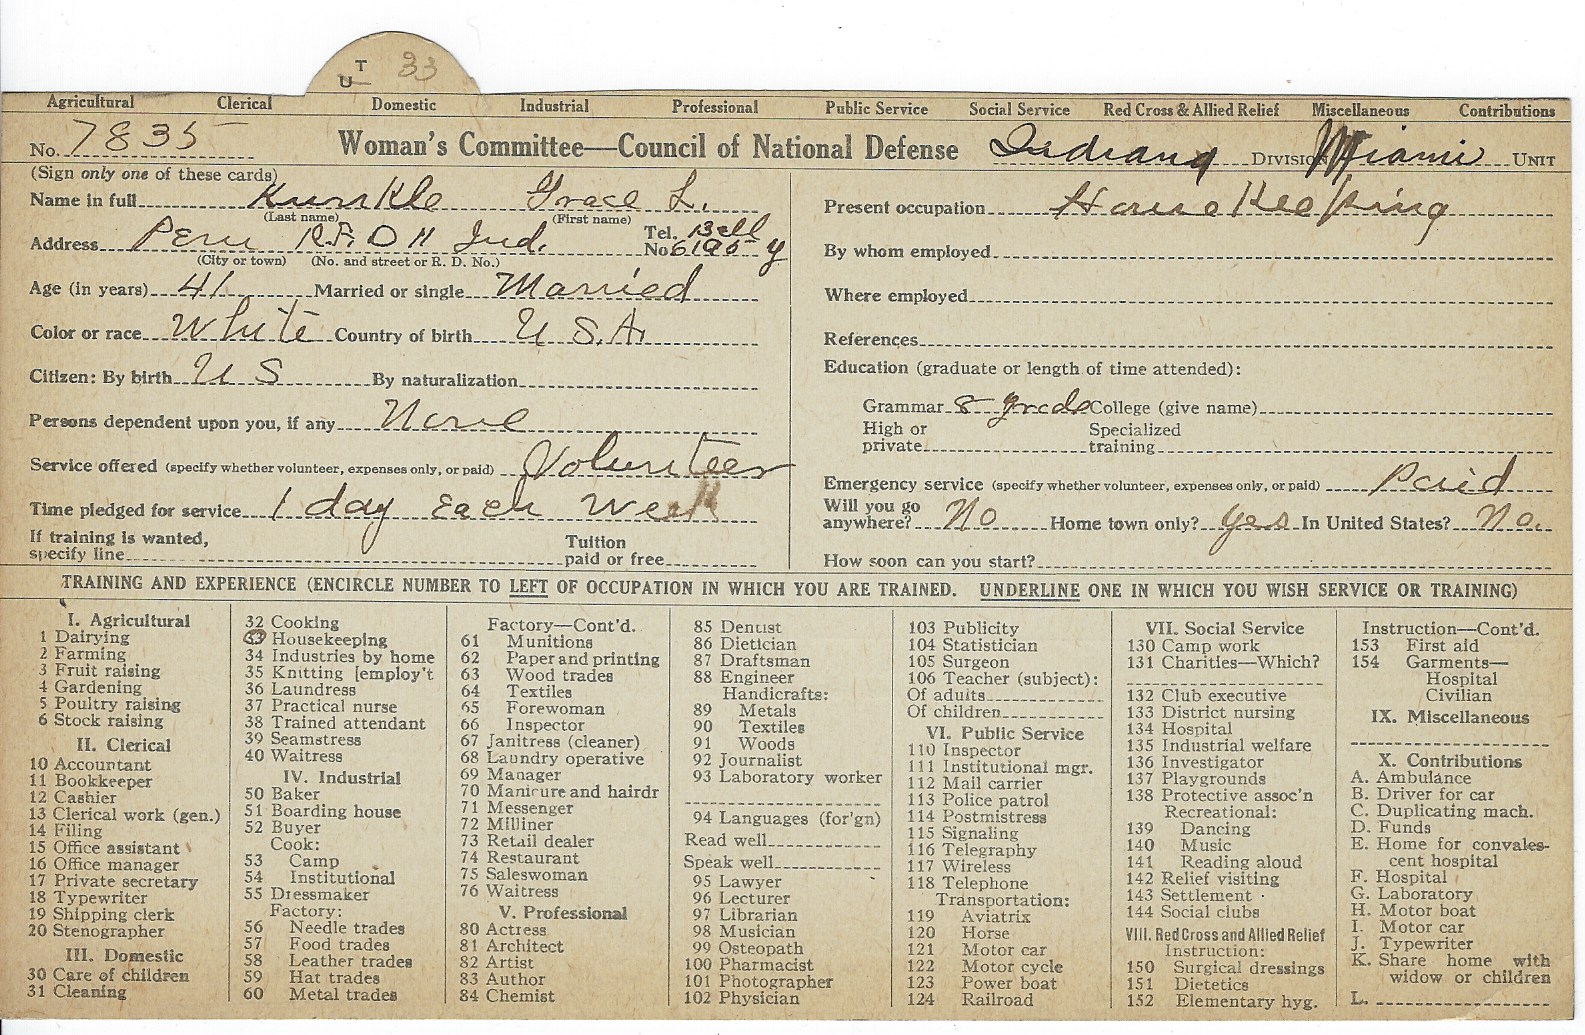 T
U 33
Agricultural Clerical Domestic Industrial Professional Public Service Social Service Red Cross & Allied Relief Miscellaneous Contributions
No. 7835 Woman's Committee—Council of National Defense Indiana Division Miami Unit
(Sign only one of these cards)
Name in full Kunkle Grace L.
(Last name) (First name)
Address Peru R.F.D 11 Ind. Tel. No. Bell 6195 y
(City or town) (No. and street or R. D. No.)
Age (in years) 41 Married or single Married
Color or race White Country of birth U S.A.
Citizen: By birth U S By naturalization
Persons dependent upon you, if any None
Service offered (specify whether volunteer, expenses only, or paid) Volunteer
Time pledged for service 1 day Each Week
If training is wanted, specify line Tuition paid or free
Present occupation House Keeping
By whom employed
Where employed
References
Education (graduate or length of time attended):
Grammar 8 grade College (give name)
High or private Specialized training
Emergency service (specify whether volunteer, expenses only, or paid) Paid
Will you go anywhere? No Home town only? yes In United States? No.
How soon can you start?
TRAINING AND EXPERIENCE (ENCIRCLE NUMBER TO LEFT OF OCCUPATION IN WHICH YOU ARE TRAINED. UNDERLINE ONE IN WHICH YOU WISH SERVICE OR TRAINING)
I. Agricultural
1 Dairying
2 Farming
3 Fruit raising
4 Gardening
5 Poultry raising
6 Stock raising
II. Clerical
10 Accountant
11 Bookkeeper
12 Cashier
13 Clerical work (gen.)
14 Filing
15 Office assistant
16 Office manager
17 Private secretary
18 Typewriter
19 Shipping clerk
20 Stenographer
III. Domestic
30 Care of children
31 Cleaning
32 Cooking
33 Housekeeping
34 Industries by home
35 Knitting [employ't
36 Laundress
37 Practical nurse
38 Trained attendant
39 Seamstress
40 Waitress
IV. Industrial
50 Baker
51 Boarding house
52 Buyer
Cook:
53 Camp
54 Institutional
55 Dressmaker
Factory:
56 Needle trades
57 Food trades
58 Leather trades
59 Hat trades
60 Metal trades
Factory—Cont'd.
61 Munitions
62 Paper and printing
63 Wood trades
64 Textiles
65 Forewoman
66 Inspector
67 Janitress (cleaner)
68 Laundry operative
69 Manager
70 Manicure and hairdr
71 Messenger
72 Milliner
73 Retail dealer
74 Restaurant
75 Saleswoman
76 Waitress
V. Professional
80 Actress
81 Architect
82 Artist
83 Author
84 Chemist
85 Dentist
86 Dietician
87 Draftsman
88 Engineer
Handicrafts:
89 Metals
90 Textiles
91 Woods
92 Journalist
93 Laboratory worker
94 Languages (for'gn)
Read well
Speak well
95 Lawyer
96 Lecturer
97 Librarian
98 Musician
99 Osteopath
100 Pharmacist
101 Photographer
102 Physician
103 Publicity
104 Statistician
105 Surgeon
106 Teacher (subject):
Of adults
Of children
VI. Public Service
110 Inspector
111 Institutional mgr.
112 Mail carrier
113 Police patrol
114 Postmistress
115 Signaling
116 Telegraphy
117 Wireless
118 Telephone
Transportation:
119 Aviatrix
120 Horse
121 Motor car
122 Motor cycle
123 Power boat
124 Railroad
VII. Social Service
130 Camp work
131 Charities—Which?
132 Club executive
133 District nursing
134 Hospital
135 Industrial welfare
136 Investigator
137 Playgrounds
138 Protective assoc'n
Recreational:
139 Dancing
140 Music
141 Reading aloud
142 Relief visiting
143 Settlement
144 Social clubs
VIII. Red Cross and Allied Relief
Instruction:
150 Surgical dressings
151 Dietetics
152 Elementary hyg.
Instruction—Cont'd.
153 First aid
154 Garments—
Hospital
Civilian
IX. Miscellaneous
X. Contributions
A. Ambulance
B. Driver for car
C. Duplicating mach.
D. Funds
E. Home for convales-
cent hospital
F. Hospital
G. Laboratory
H. Motor boat
I. Motor car
J. Typewriter
K. Share home with
widow or children
L.